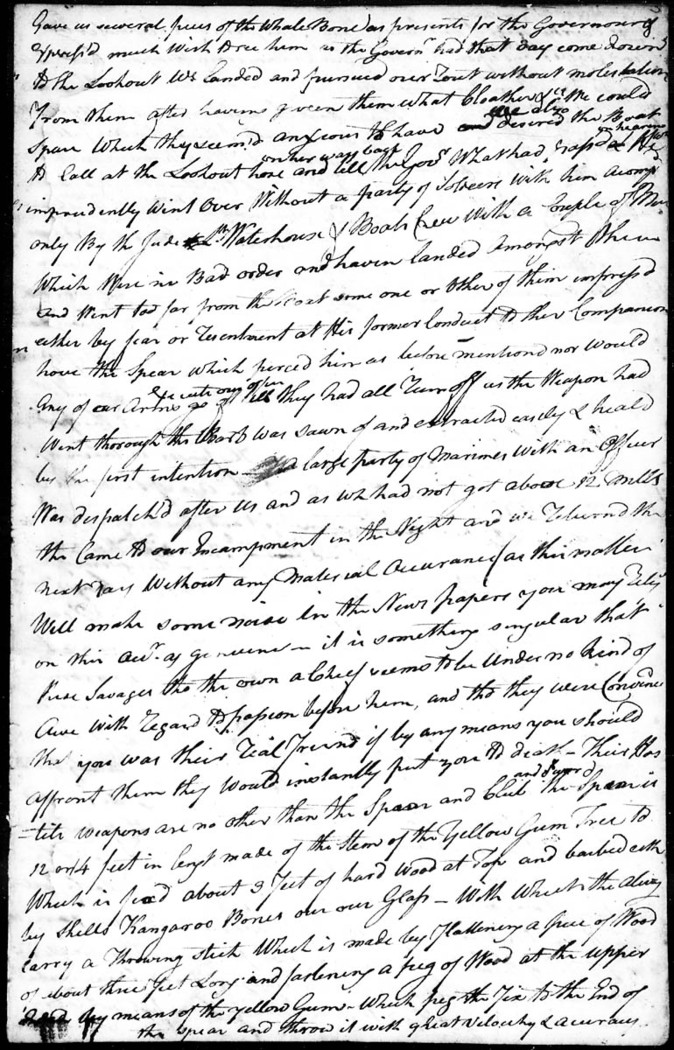 Gave us several pieces of the Whale Bone as presents for the Governour &
Express'd much Wish to see him as the Govern.r had that Day come down
to the Lookout We Landed and pursued our Rout without molestation
From them after having given them what Cloathes &ca We could
Spare Which they seem'd anxious to have we also desired the Boat
to Call at the Lookout on her way back and tell the Gov.r What had pass'd on hearing he
imprudently Went Over Without a party of Soldiers with him
only By the Judge Lt. Waterhouse & Boats Crew With a Couple of
Which Were in Bad order and haven landed Amongst them
and Went too far from the Boat some one or other of them impress'd
either by fear or Resentment at His former Conduct to ther Companions
hove the Spear which pierced him as before mentiond nor Would
Any of our Arms go of till they had all Run off as the Weapon had
Went thorough the Barb was sawn of and extracted easely & heald
by the first intention — a large party of Marines With an Officer
Was despatch'd after us and as we had not got above 12 Mills
the Came to our Encampment in the Night and we Returnd the
next Day Without any Material Occurance (as this matter
Will make some noise in the News papers you may Rely
on this acct. as genuene — it is something singular that
these Savages tho the own a Chief seems to be Under no kind of
Awe With Regard to passion before him, and tho they were Convinc'd
tht you was their Real Freind if by any means you should
affront them they Would instantly put you to death — Their Hos
=tile weapons are no other than the Spear and Club and Sword the Spear is
12 or 14 feet in lengt made of the Stem of the Yellow Gum Tree to
Which is fixd about 3 Feet of hard Wood at Top and barbed eith
by Shells Kangaroo Bones our our Glass — With Which the Alway
carry a Throwing stick Which is made by Flattening a piece of Wood
of about three feet Long and fastening a peg of Wood at the upper
by means of the yellow Gum — Which peg the Fix to the End of
the Spear and throw it with great Velocity & accuracy